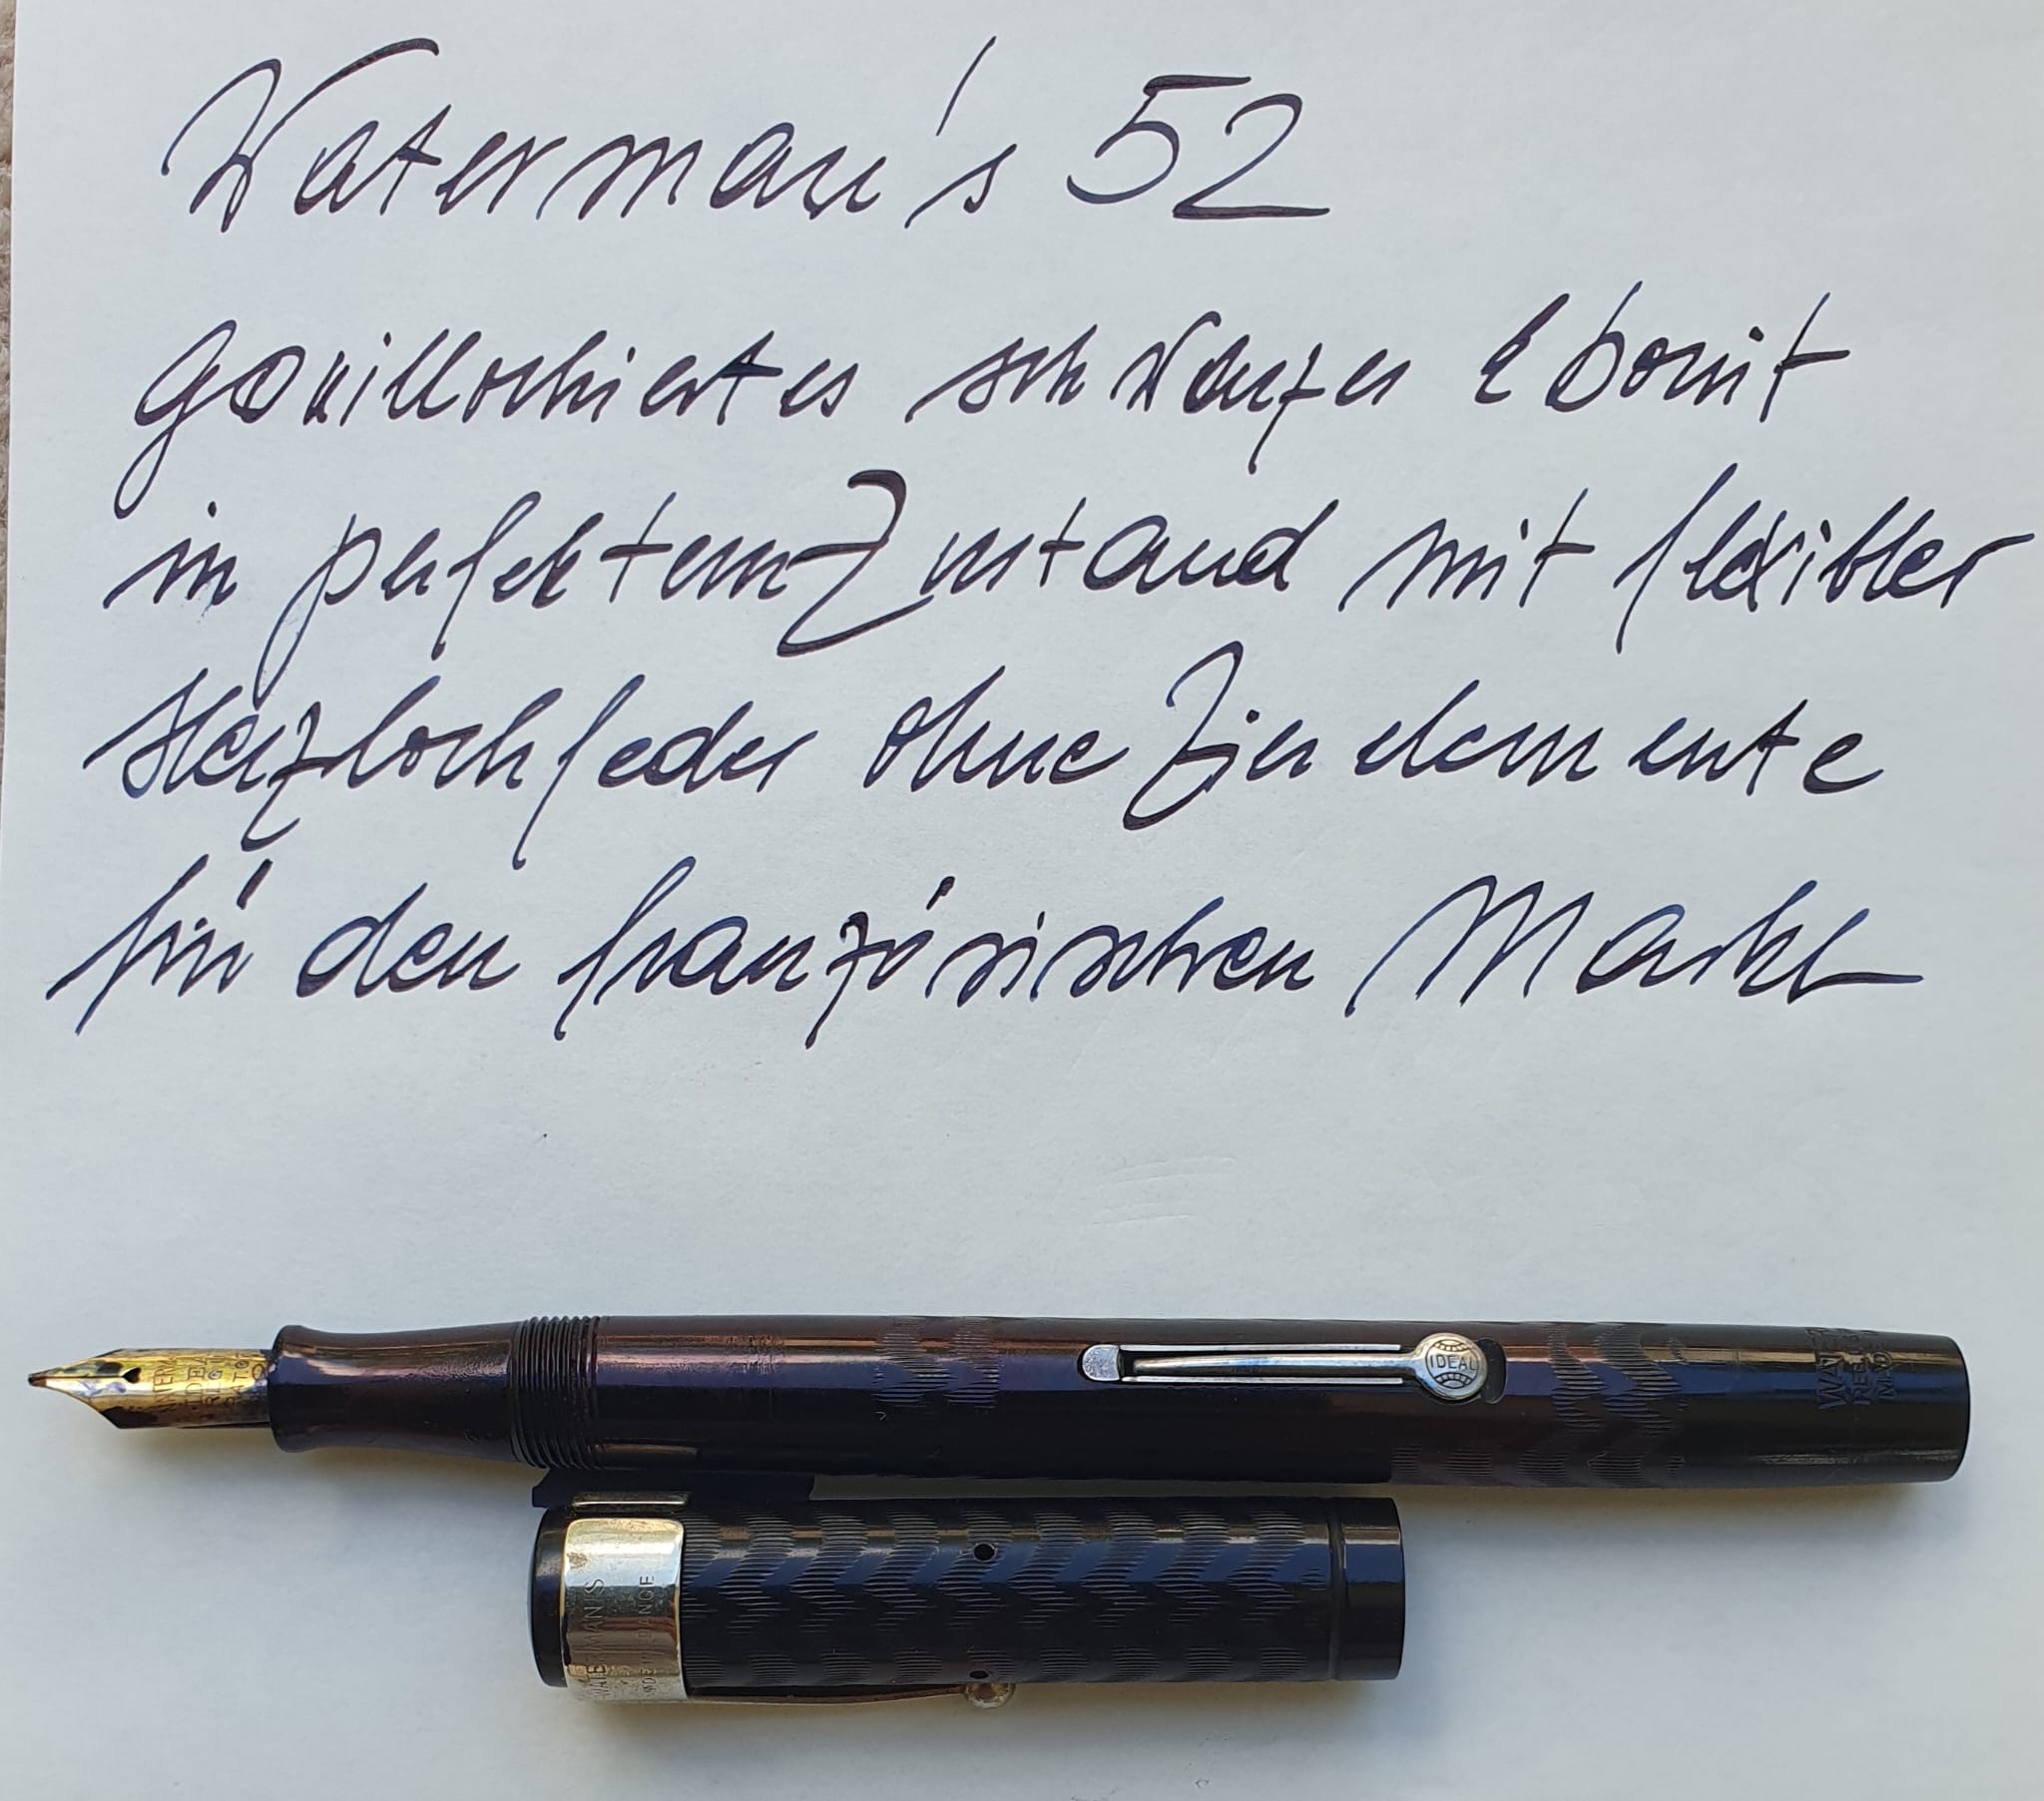 Waterman's 52
Gouillochiertes schwarzes Ebonit
in perfektem Zustand mit flexibler
Herzlochfeder ohne Zierelemente
für den französischen Markt
IDEAL
WATERMAN'S
FRANCE
IDEAL